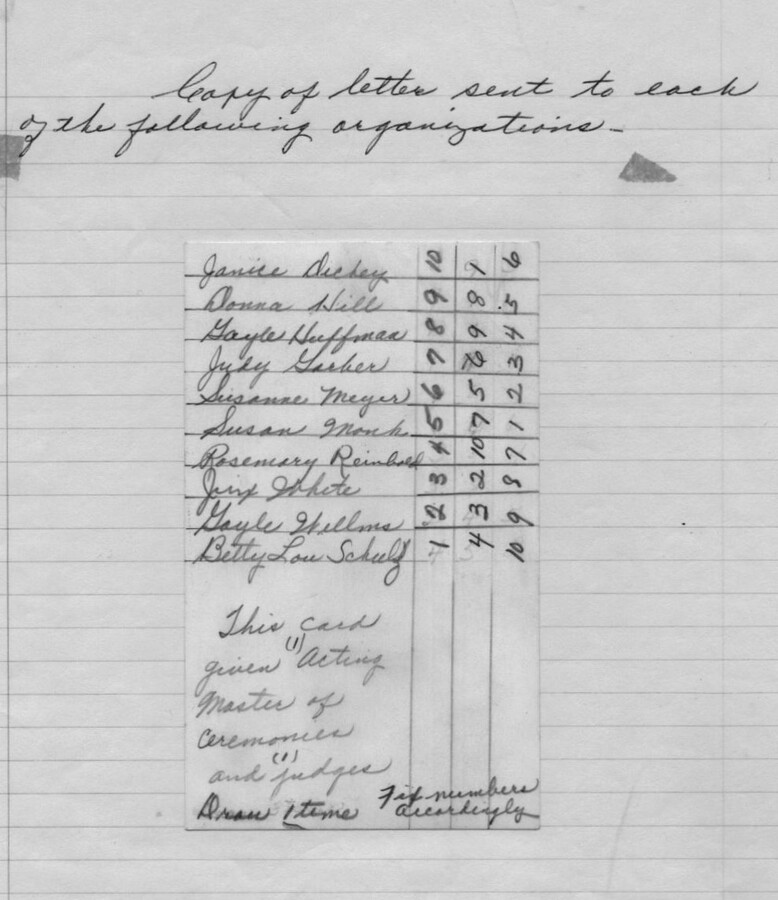 Copy of letter sent to each
of the following organizations -
Janice Dickey 10 1 6
Donna Hill 9 8 5
Gayle Huffman 8 9 4
Judy Garber 7 6 3
Susanne Meyer 6 5 2
Susan Monk 5 7 1
Rosemary Reinbold 4 10 7
Jinx White 3 2 8
Gayle Willms 2 3 9
Betty Lou Schulz 1 4 10
This card
given (1) Acting
Master of
Ceremonies
and (1) judges
Draw 1 time Fix numbers
accordingly